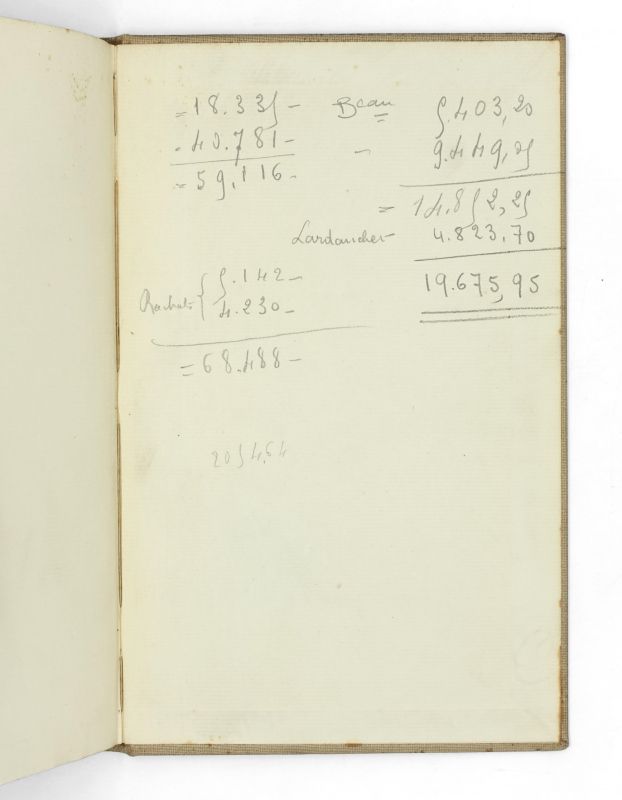 = 18.335 - Beau 5.403,20
- 40.781 - - 9.449,05
= 59.116 -
= 14.852,25
Lardanchet - 4.823,70
Rachats { 5.142 -
19.675,95
4.230 -
= 68.488 -
2054,64